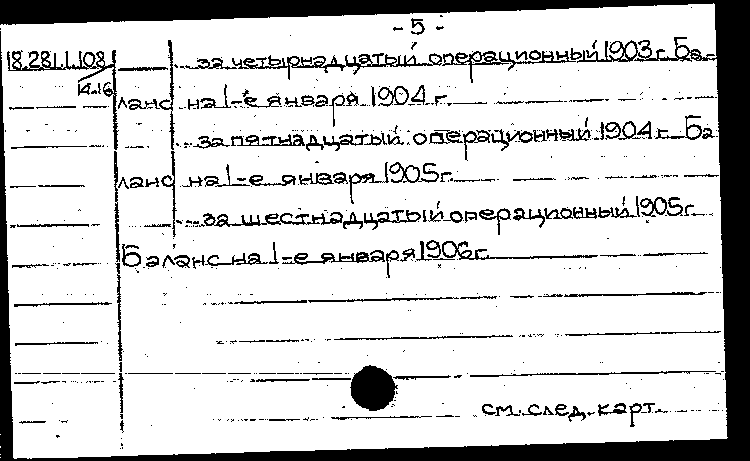 - 5 -
18.281.1.108 ... за четырнадцатый операционный 1903 г. Ба-
14.16 ланс на 1-е января 1904 г.
... за пятнадцатый операционный 1904 г. Ба
ланс на 1-е января 1905 г.
... за шестнадцатый операционный 1905 г.
Баланс на 1-е января 1906 г.
см. след. карт.